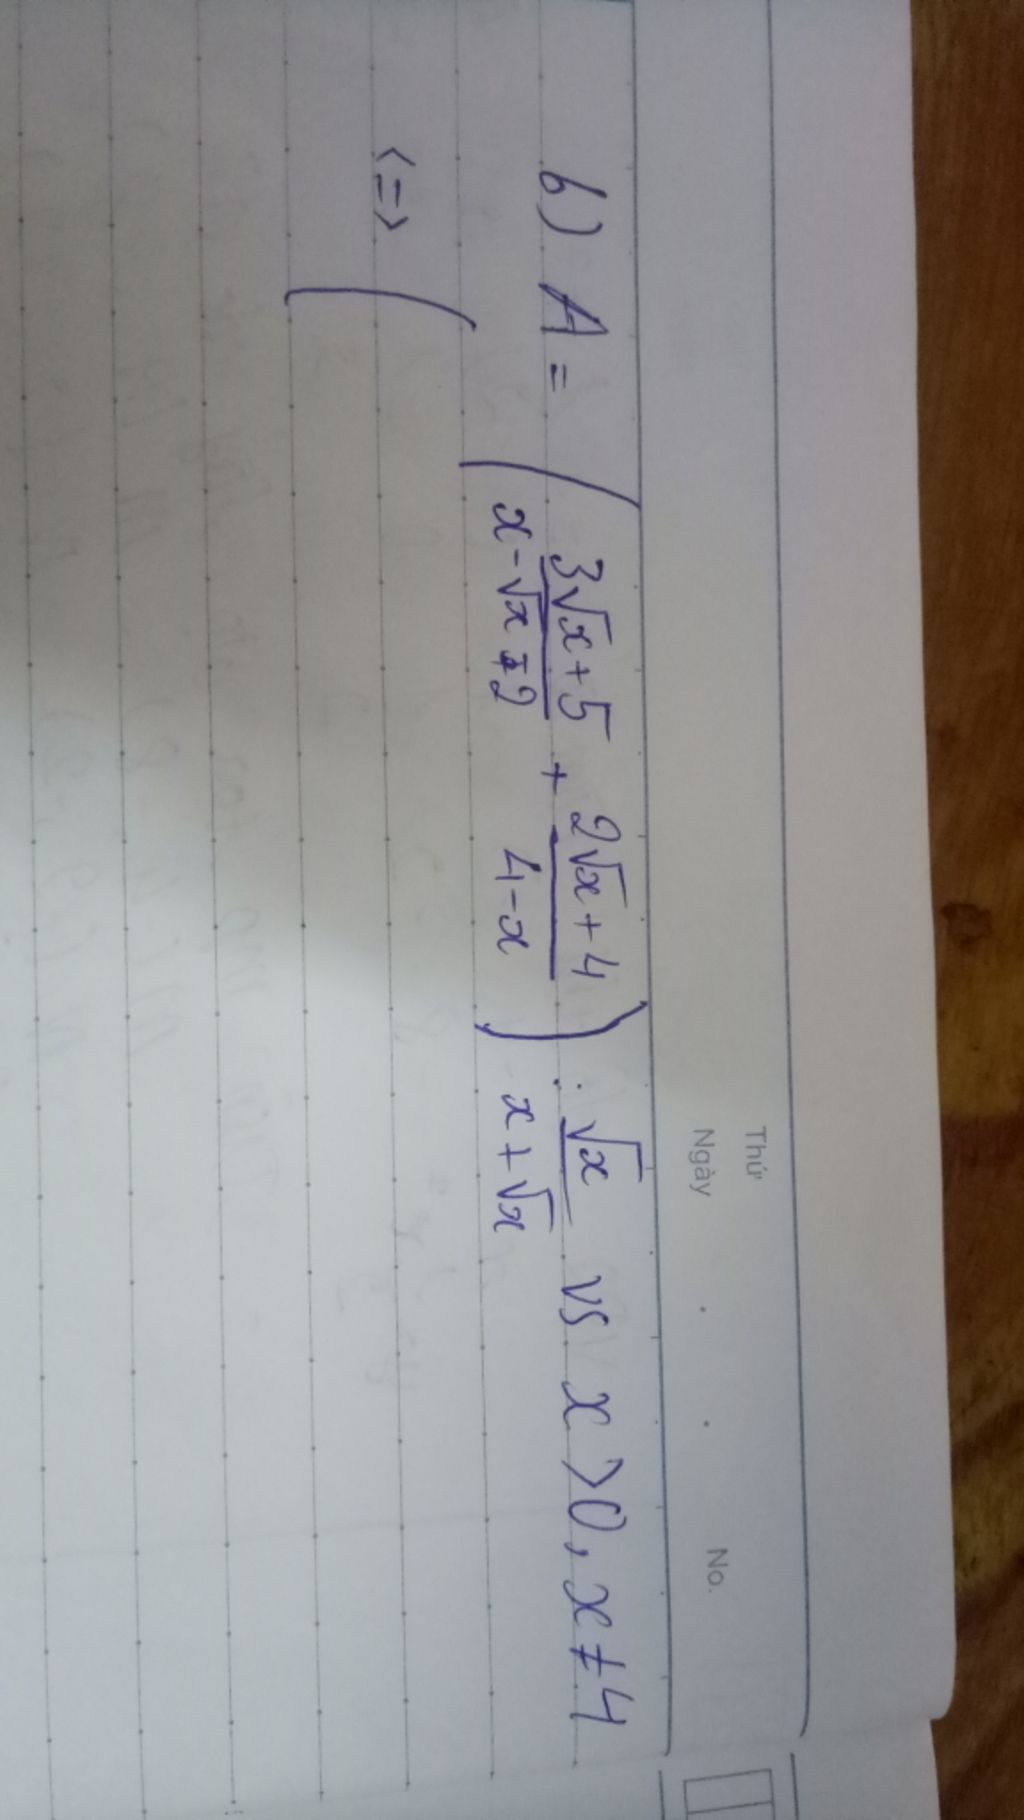 Thứ
Ngày . . No.
b) A = (3√x+5 / x-√x-2 + 2√x+4 / 4-x) : √x / x+√x vs x>0, x≠4
<=> (